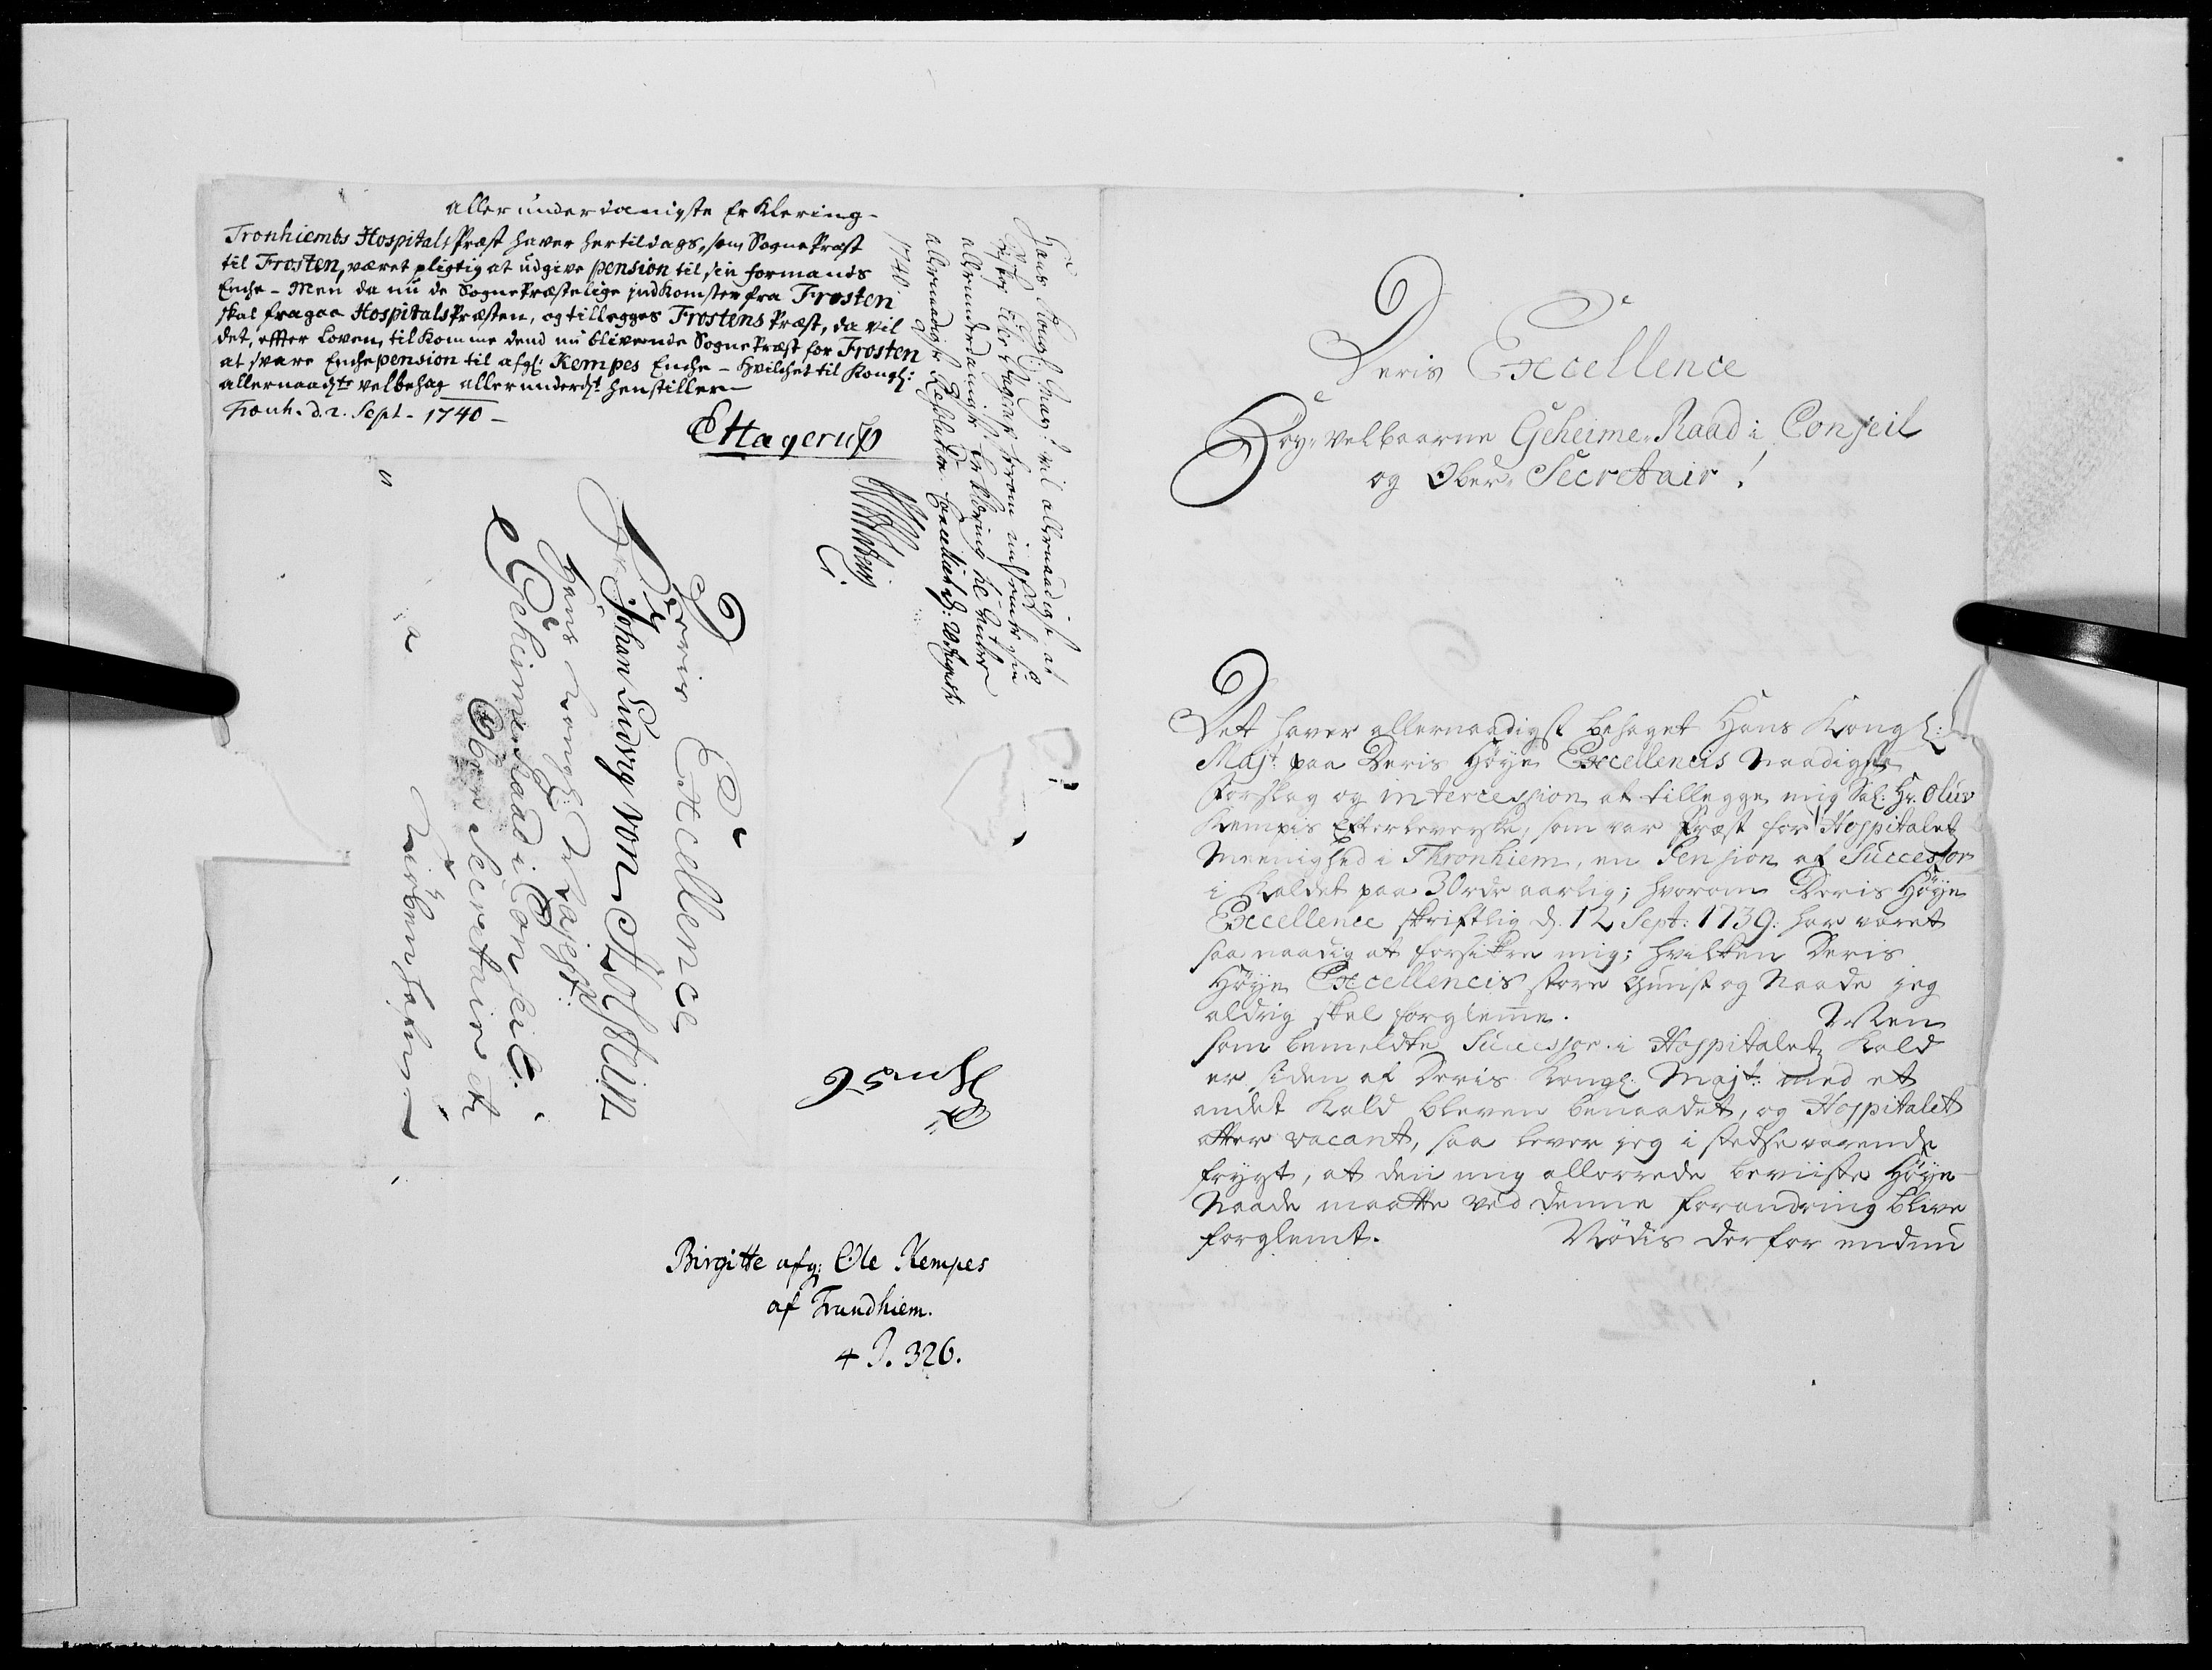 allerunderdanigste Erklering -
Tronhiembs Hospitals Præst haver hertildags, som Sogne Præst
til Frosten, været pligtig at udgive pension til sin formands
Enche - Men da nu de Sogne Præstelige jndkomster fra Frosten
skal fragaa Hospitals Præsten, og tillegges Frostens Præst, da vil
det, effter Loven, tilkomme dend nu blivende Sogne Præst for Frosten
at svare Enche pension til afgl: Kempes Enche - Hvilchet til Kongl:
allernaadgte velbehag allerunderdt henstilles
Tronh. d. 2. Sept - 1740 -
E Hagerup
Hans Kongl: May: vil allernaadigst at
Bisp Eiler Hagerup herom indsender sin
allerunderdanigste Erklering til videre
allernaadigst Resolution. Cancelliet d: August
1740
Deris Excellence
Hr: Johan Ludvig von Holstein
Hans Kongl: Majest:
Geheime Raad i Conseil.
Ober Secretair etc
Kiøbenhafn
Birgitte afg: Ole Kempes
af Trundhiem.
4 J. 326.
Deris Excellence
Høy-velbaarne Geheime-Raad i Conseil
og Ober-Secretair!
Det haver allernaadigst behaget Hans Kongl:
Majt: paa Deris Høye Excellencis Naadigste
Forslag og intercession at tillegge mig Sal: Hr. Oluv
Kempis Efterleverske, som var Præst for Hospitalets
Meenighed i Thronhiem, en Pension af Successor
i Kaldet paa 30 rdr aarlig; hvorom Deris Høye
Excellence skriftlig d. 12 Sept: 1739. har været
saa naadig at forsikre mig; hvilken Deris
Høye Excellencis store Gunst og Naade jeg
aldrig skal forglemme. Men
som bemeldte Successor i Hospitalets Kald
er siden af Deris Kongl: Majt: med et
andet Kald bleven benaadet, og Hospitalet
atter vacant, saa lever jeg i stedsevarende
frygt, at den mig allerrede beviiste Høye
Naade maatte ved denne forandring blive
forglemt. Nødis derfor endnu